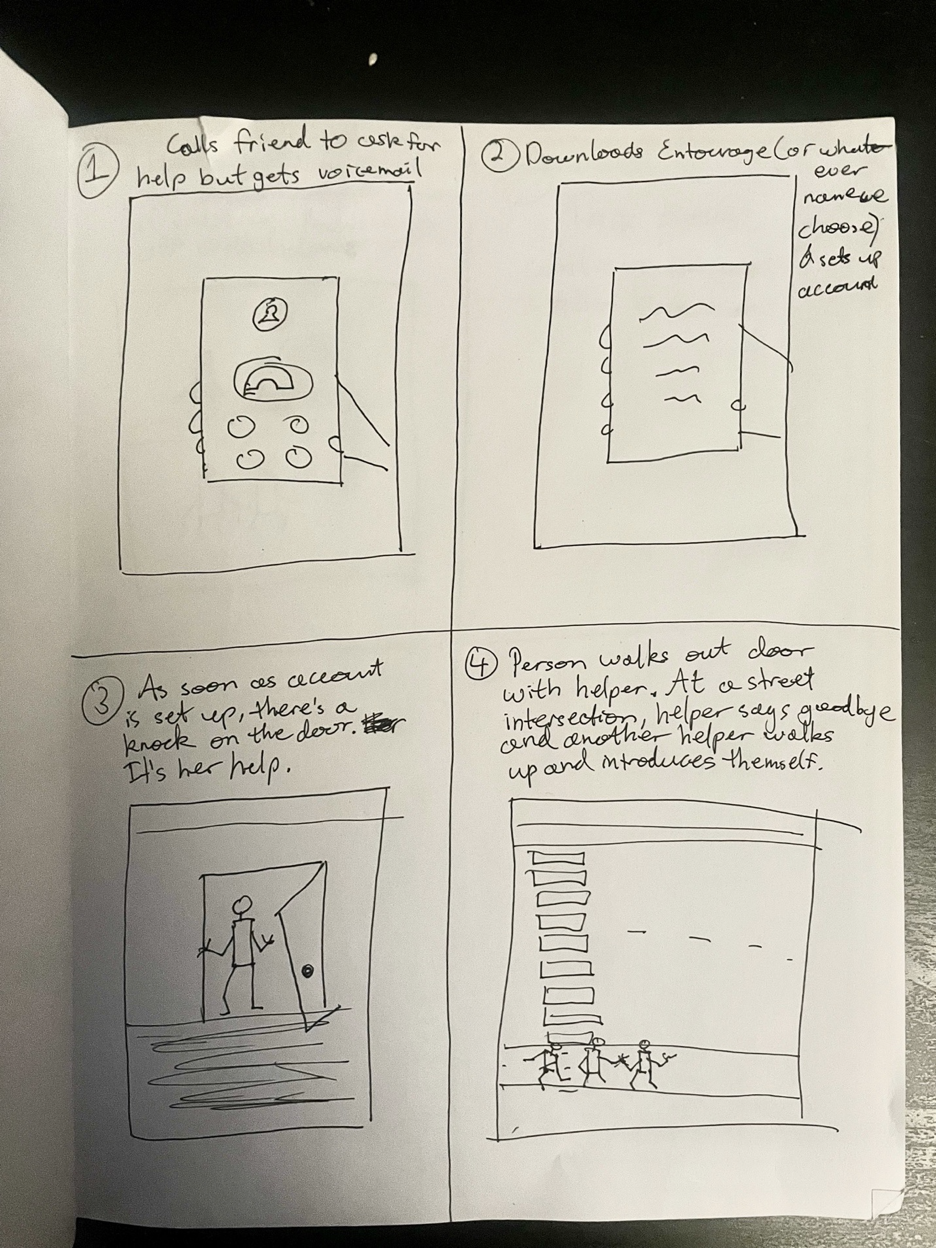 1
Calls friend to ask for
help but gets voicemail
2 Downloads Entourage (or whate
ever
name we
choose)
& sets up
account
3 As soon as account
is set up, there's a
knock on the door.
It's her help.
4 Person walks out door
with helper. At a street
intersection, helper says goodbye
and another helper walks
up and introduces themself.